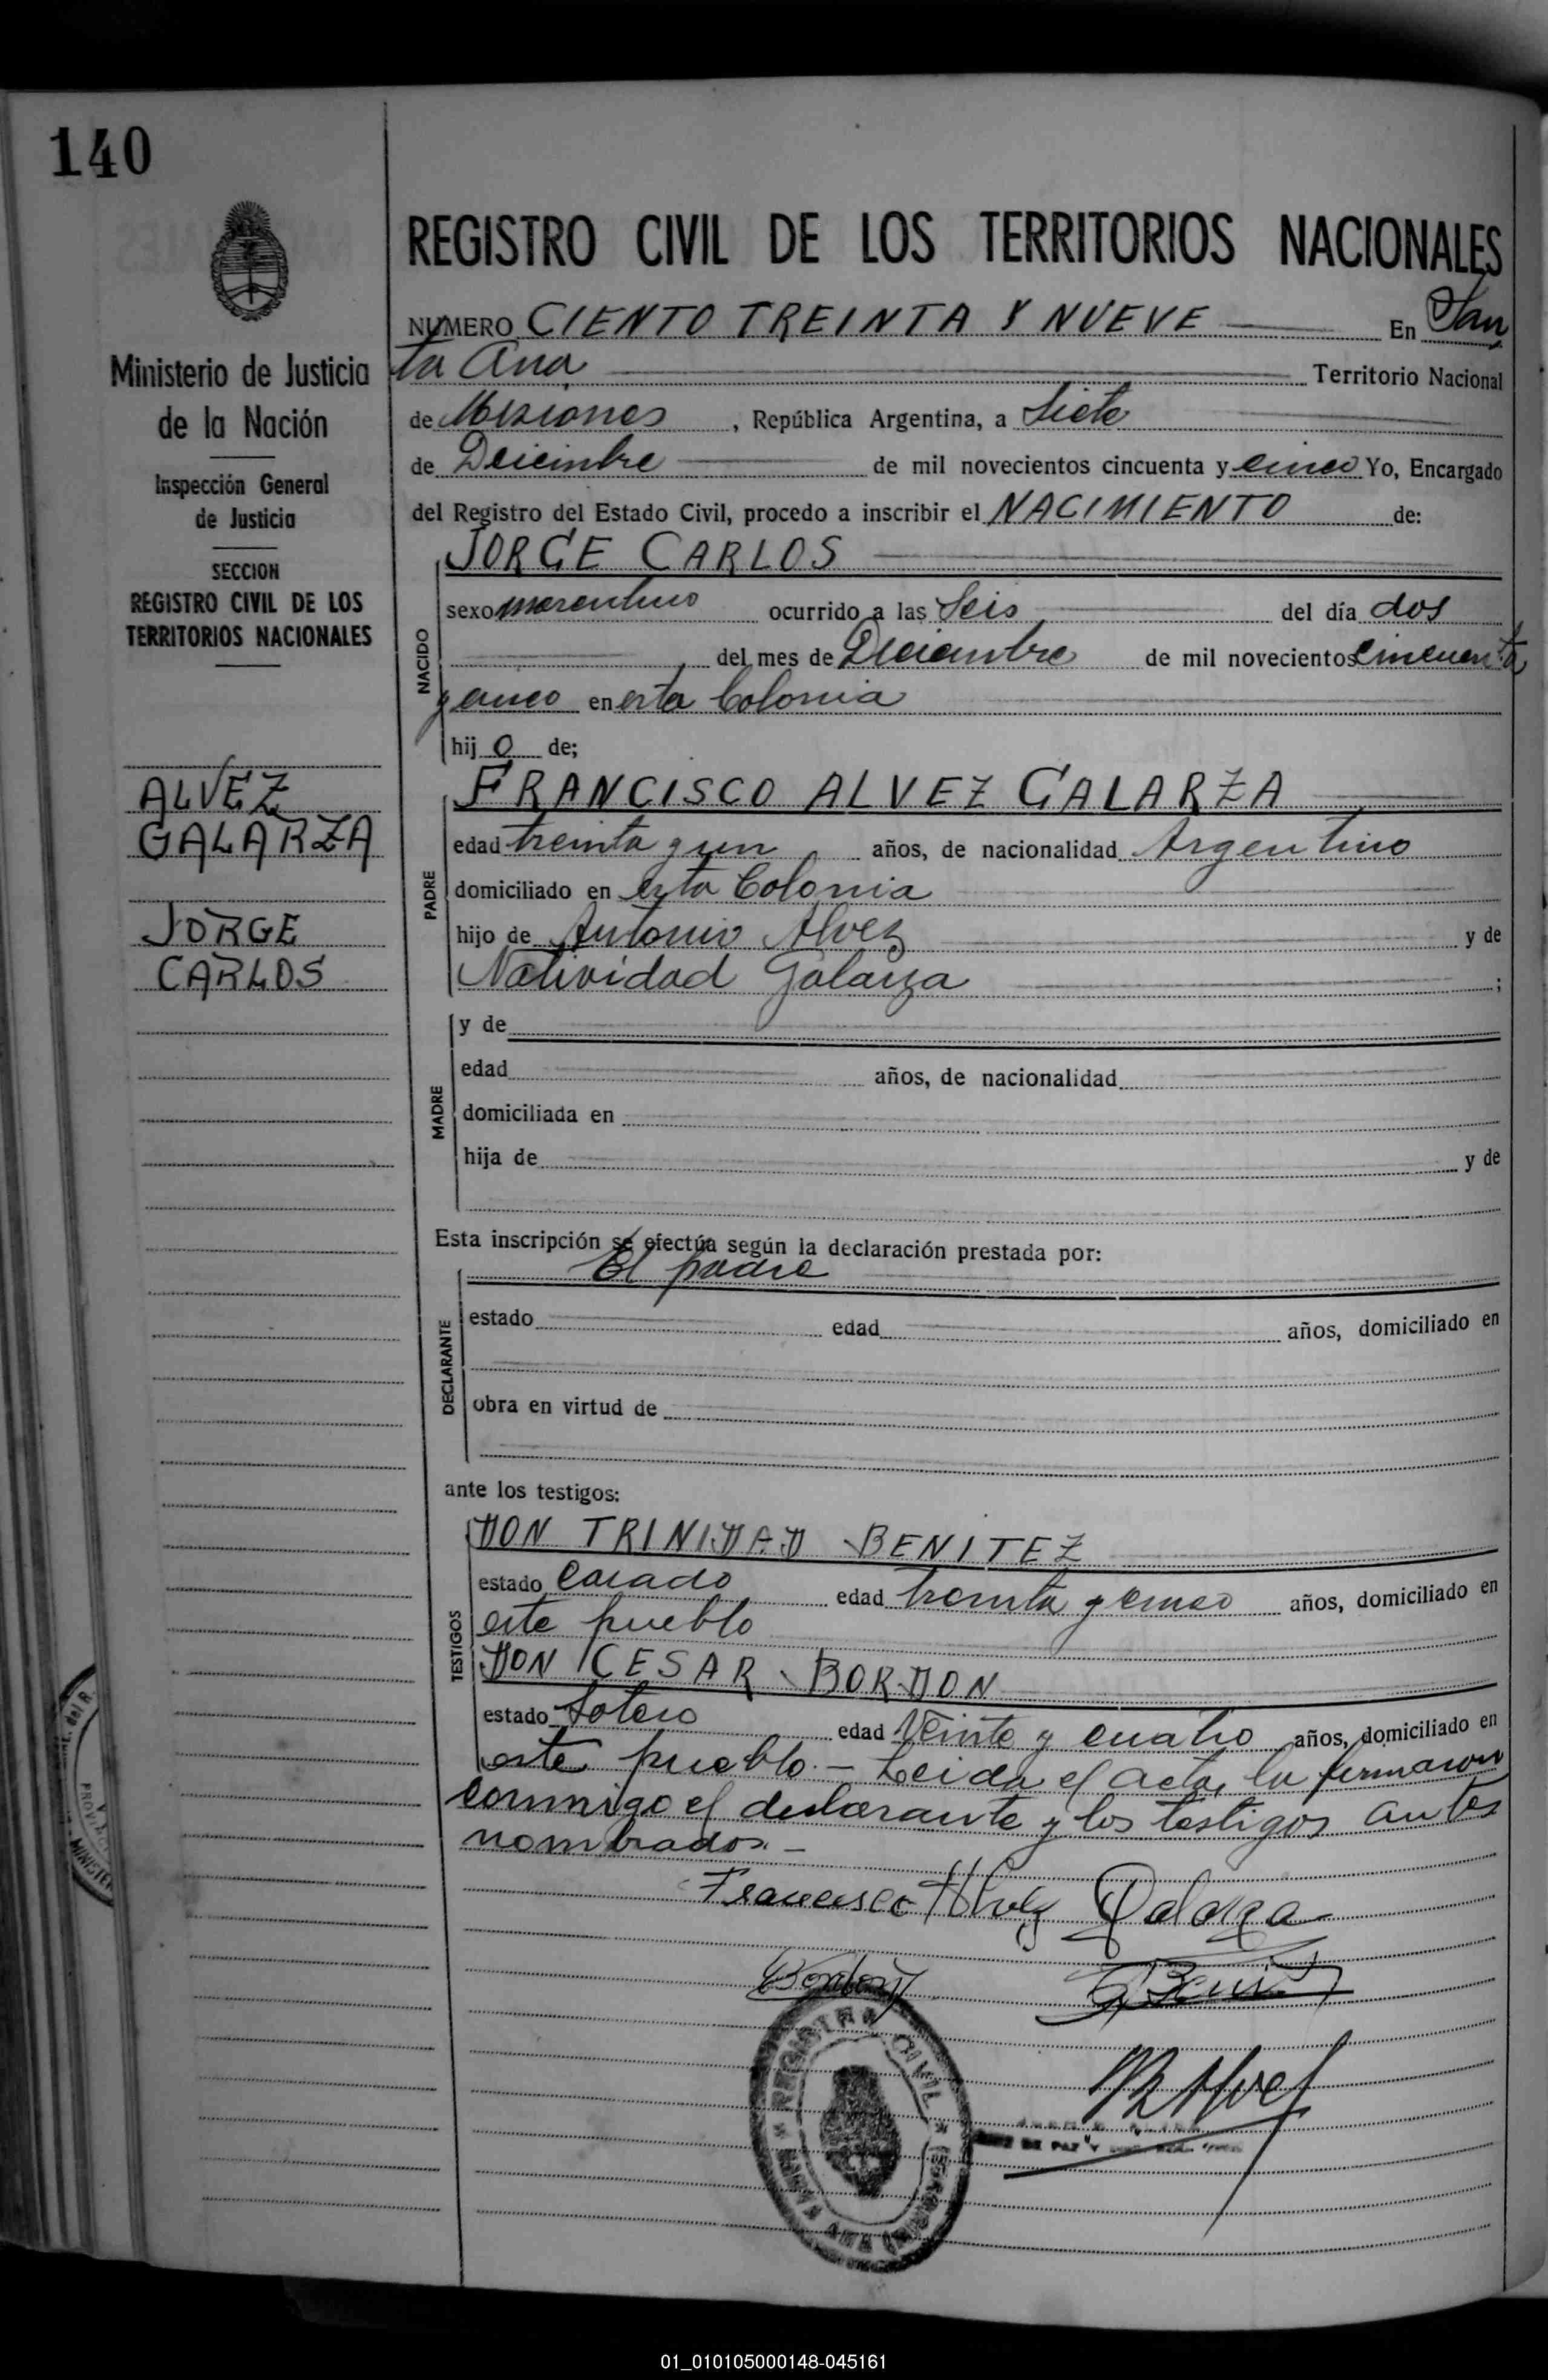 140
REGISTRO CIVIL DE LOS TERRITORIOS NACIONALES
NUMERO CIENTO TREINTA Y NUEVE En San
ta Ana Territorio Nacional
de Misiones, República Argentina, a Siete
de Diciembre de mil novecientos cincuenta y cinco Yo, Encargado
del Registro del Estado Civil, procedo a inscribir el NACIMIENTO de:
JORGE CARLOS
NACIDO
sexo masculino ocurrido a las Seis del día dos
del mes de Diciembre de mil novecientos cincuenta
y cinco en esta Colonia
hijo de;
FRANCISCO ALVEZ GALARZA
PADRE
edad treinta y un años, de nacionalidad Argentino
domiciliado en esta Colonia
hijo de Antonio Alvez y de
Natividad Galarza;
MADRE
y de
edad años, de nacionalidad
domiciliada en
hija de y de
Esta inscripción se efectúa según la declaración prestada por:
El padre
DECLARANTE
estado edad años, domiciliado en
obra en virtud de
ante los testigos:
TESTIGOS
DON TRINIDAD BENITEZ
estado Casado edad treinta y cinco años, domiciliado en
este pueblo
DON CESAR BORDON
estado Soltero edad Veinte y cuatro años, domiciliado en
este pueblo.- Leida el acta, la firmaron
conmigo el declarante y los testigos antes
nombrados.-
Francisco Alvez Galarza
Bordon
Ministerio de Justicia
de la Nación
Inspección General
de Justicia
SECCION
REGISTRO CIVIL DE LOS
TERRITORIOS NACIONALES
ALVEZ
GALARZA
JORGE
CARLOS
REGISTRO CIVIL
01_010105000148-045161